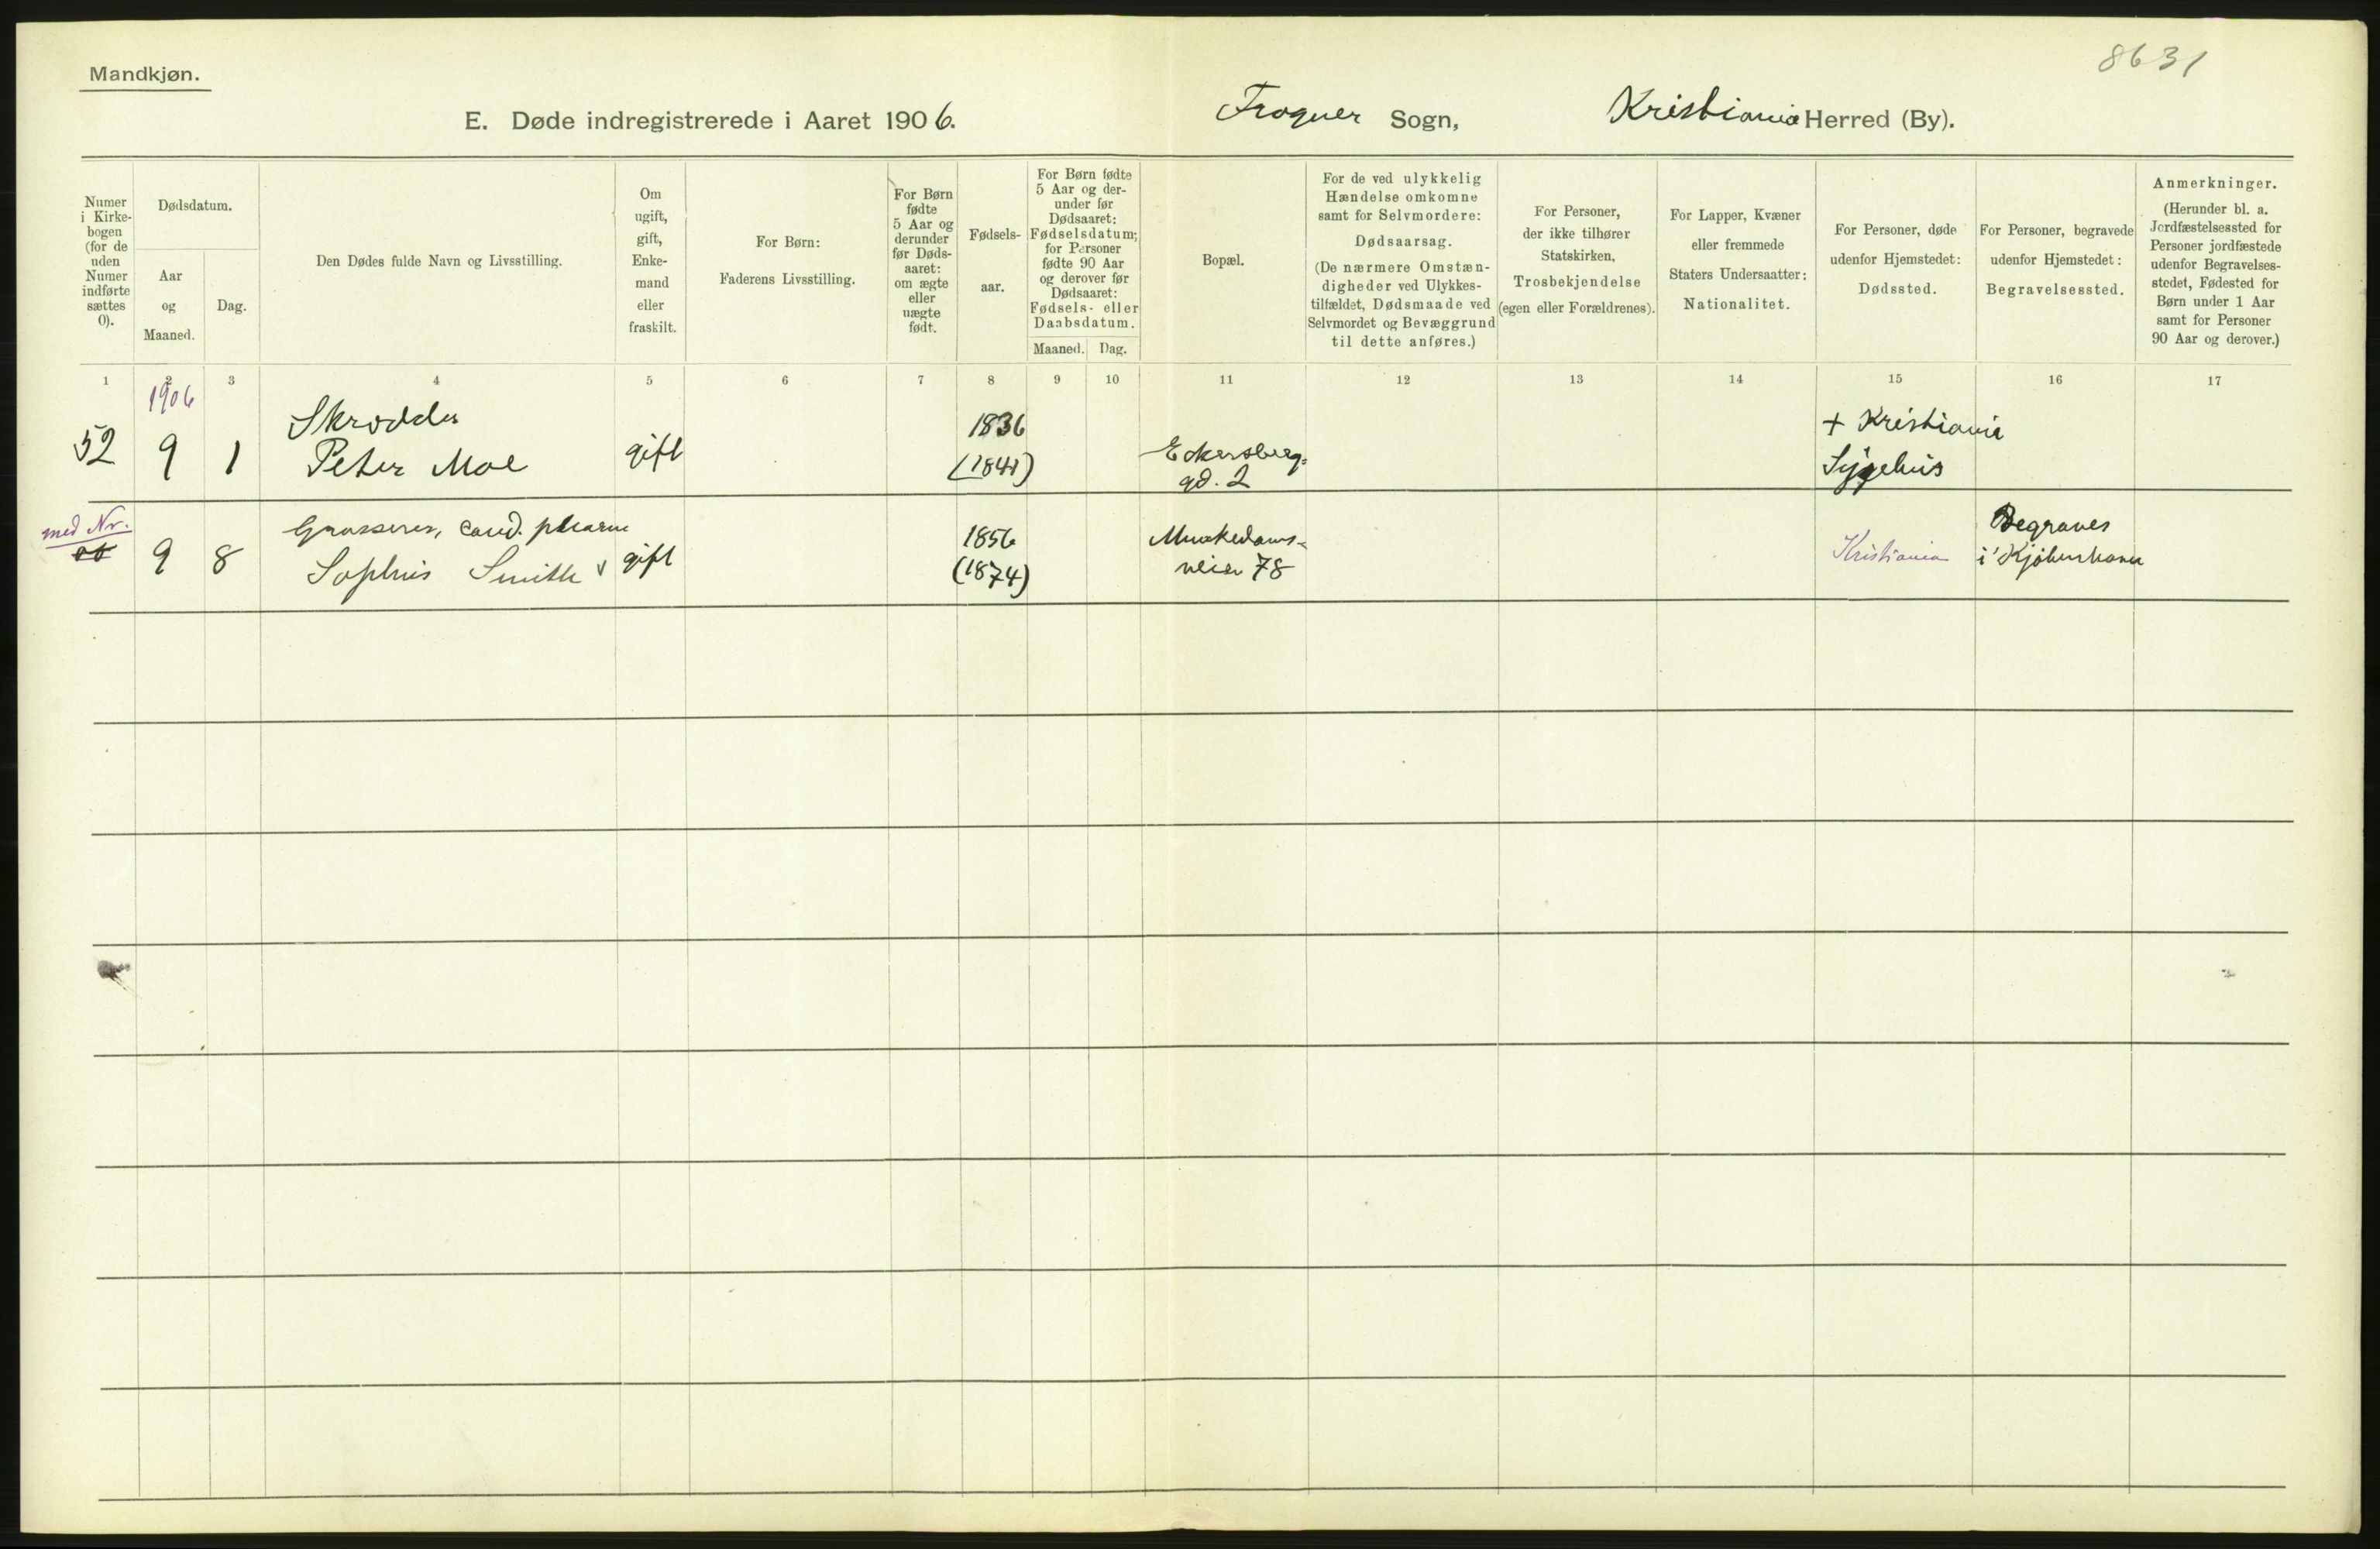 8631
Mandkjøn.
E. Døde indregistrerede i Aaret 1906. Frogner Sogn, Kristiania Herred (By).
Numer
i Kirke-
bogen
(for de
uden
Numer
indførte
sættes
0).
Dødsdatum.
Aar
og
Maaned.
Dag.
Den Dødes fulde Navn og Livsstilling.
Om
ugift,
gift,
Enke-
mand
eller
fraskilt.
For Børn:
Faderens Livsstilling.
For Børn
fødte
5 Aar og
derunder
før Døds-
aaret:
om ægte
eller
uægte
født.
Fødsels-
aar.
For Børn fødte
5 Aar og der-
under før
Dødsaaret:
Fødselsdatum;
for Personer
fødte 90 Aar
og derover før
Dødsaaret:
Fødsels- eller
Daabsdatum.
Maaned. Dag.
Bopæl.
For de ved ulykkelig
Hændelse omkomne
samt for Selvmordere:
Dødsaarsag.
(De nærmere Omstæn-
digheder ved Ulykkes-
tilfældet, Dødsmaade ved
Selvmordet og Bevæggrund
til dette anføres.)
For Personer,
der ikke tilhører
Statskirken,
Trosbekjendelse
(egen eller Forældrenes).
For Lapper, Kvæner
eller fremmede
Staters Undersaatter:
Nationalitet.
For Personer, døde
udenfor Hjemstedet:
Dødssted.
For Personer, begravede
udenfor Hjemstedet:
Begravelsessted.
Anmerkninger.
(Herunder bl. a.
Jordfæstelsessted for
Personer jordfæstede
udenfor Begravelses-
stedet, Fødested for
Børn under 1 Aar
samt for Personer
90 Aar og derover.)
1 2 3 4 5 6 7 8 9 10 11 12 13 14 15 16 17
1906
52 9 1
Skrædder
Peter Moe
gift
1836
(1841)
Eckersberg-
gd. 2
+ Kristiania
Sygehus
med Nr.
9 8
Grosserer, cand. pharm
Sophus Smith
gift
1856
(1874)
Munkedams-
veien 78
Kristiania
Begraves
i Kjøbenhavn